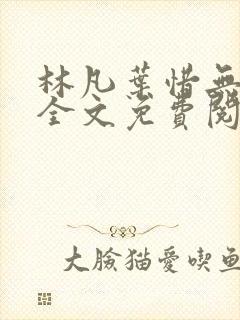 林凡葉惜無
全文免費閱
大臉猫愛喫鱼